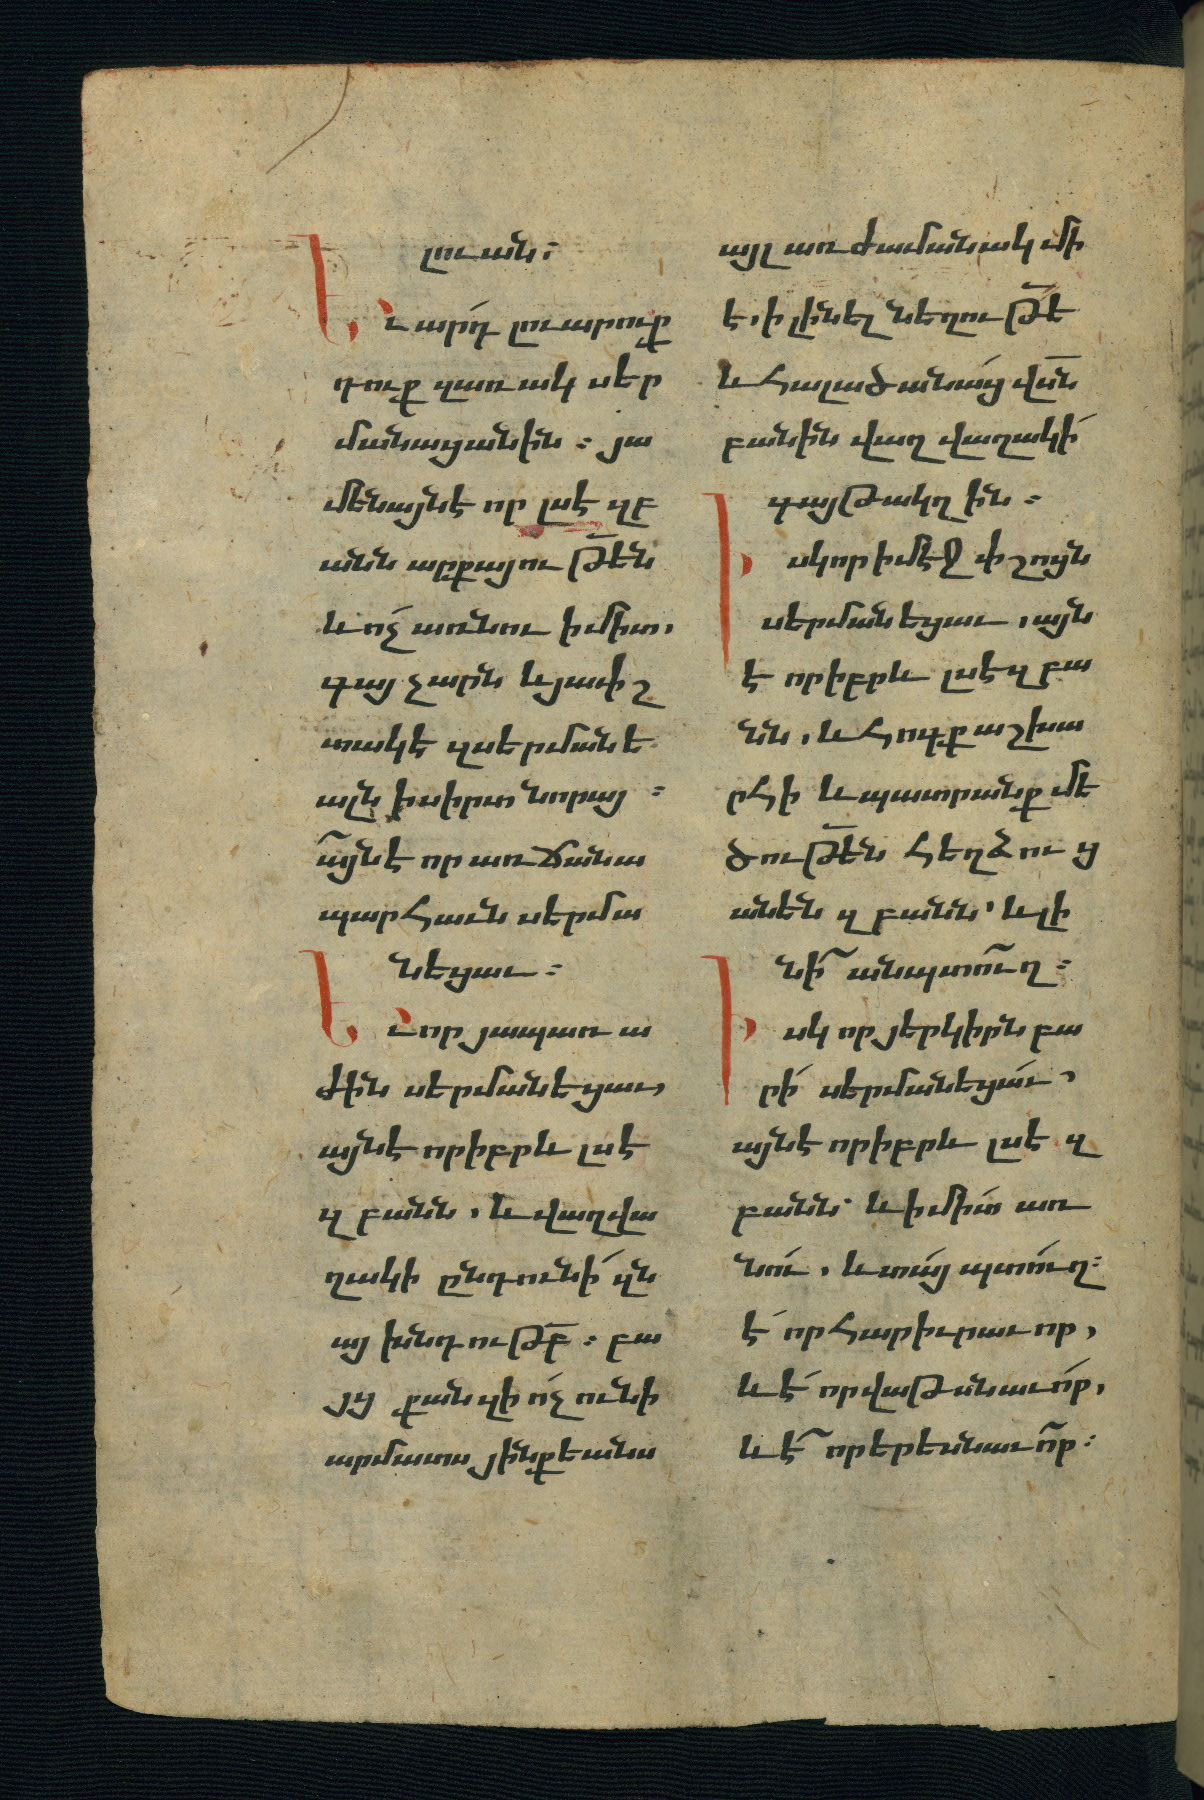 լուան։
Եւ արդ լուարուք
դուք զառակ սեր
մանացանին։ յա
մենայնէ որ լսէ զբ
անն արքայու թ̅էն
և ոչ առնու ի միտ,
գայ չարն և յափշ
տակէ զսերմանե
ալն ի սիրտ նորայ։
այնէ որ առ ճանա
պարհաւն սերմա
նեցաւ։
Եւ որ յապառա
ժին սերմանեցաւ,
այնէ որ իբրև լսէ
զբանն, և վաղվա
ղակի ընդունի զն
այ խնդութբ̅։ բա
յց քանզի ոչ ունի
արմատս յինքեանս
այլ առ ժամանակ մի
է, ի լինել նեղութ̅ե
և հալածանաց վ̅ն
բանին վաղվաղակի
գայթակղին։
Իսկ որ ի մէջ փշոյն
սերմանեցաւ, այն
է որ իբրև լսէ զբա
նն, և հոգք աշխա
րհի և պատրանք մե
ծութ̅են հեղձուց
անեն զբանն՝ և լի
նի անպտուղ։
Իսկ որ յերկիրն բա
րի սերմանեցաւ,
այնէ որ իբրև լսէ զ
բանն՝ և ի միտ առ
նու, և տայ պտուղ։
է որ հարիւրաւոր,
և է որ վաթսնաւոր,
և է որ երեսնաւոր։